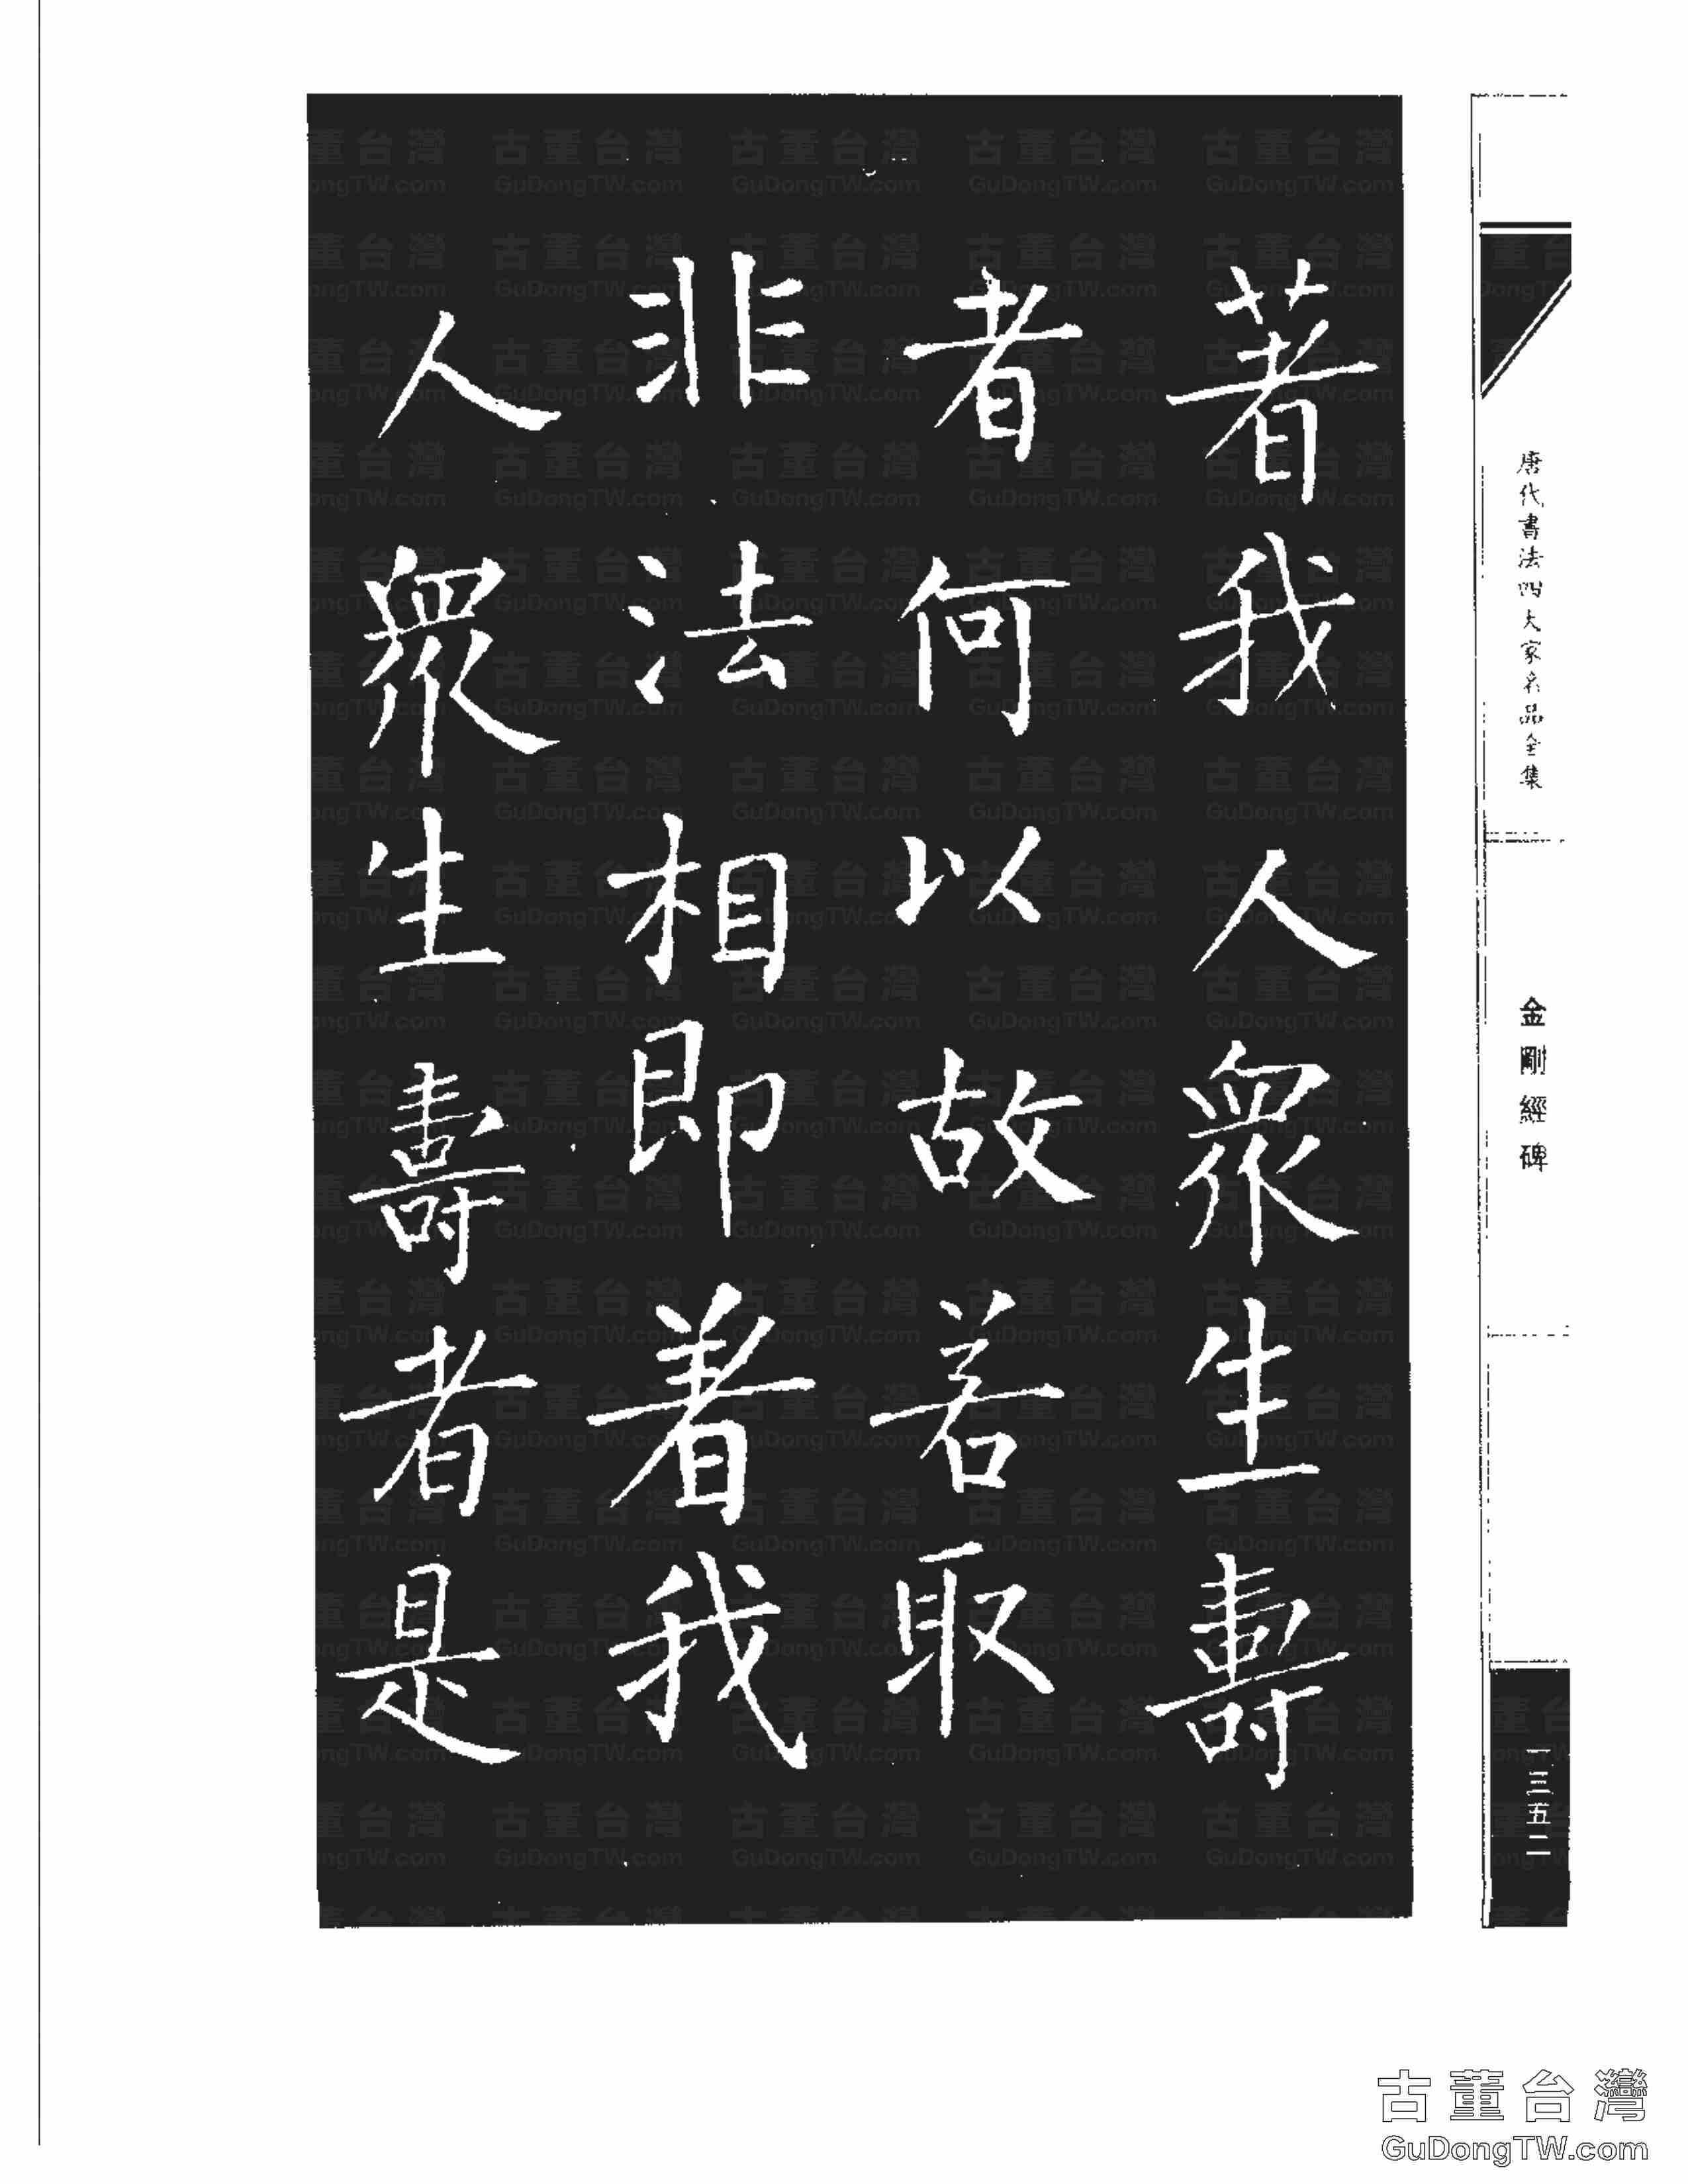 著我人衆生壽
者何以故若取
非法相即著我
人衆生壽者是
唐代書法四大家名品全集
金剛經碑
一三五二
古董台灣
GuDongTW.com